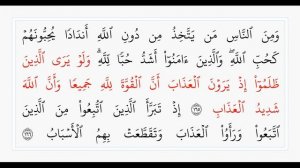 وَمِنَ النَّاسِ مَن يَتَّخِذُ مِن دُونِ اللَّهِ أَندَادًا يُحِبُّونَهُمْ
كَحُبِّ اللَّهِ ۖ وَالَّذِينَ ءَامَنُوٓا۟ أَشَدُّ حُبًّا لِّلَّهِ ۗ وَلَوْ يَرَى الَّذِينَ
ظَلَمُوٓا۟ إِذْ يَرَوْنَ الْعَذَابَ أَنَّ الْقُوَّةَ لِلَّهِ جَمِيعًا وَأَنَّ اللَّهَ
شَدِيدُ الْعَذَابِ ﴿١٦٥﴾ إِذْ تَبَرَّأَ الَّذِينَ اتُّبِعُوا۟ مِنَ الَّذِينَ
اتَّبَعُوا۟ وَرَأَوُا۟ الْعَذَابَ وَتَقَطَّعَتْ بِهِمُ الْأَسْبَابُ ﴿١٦٦﴾